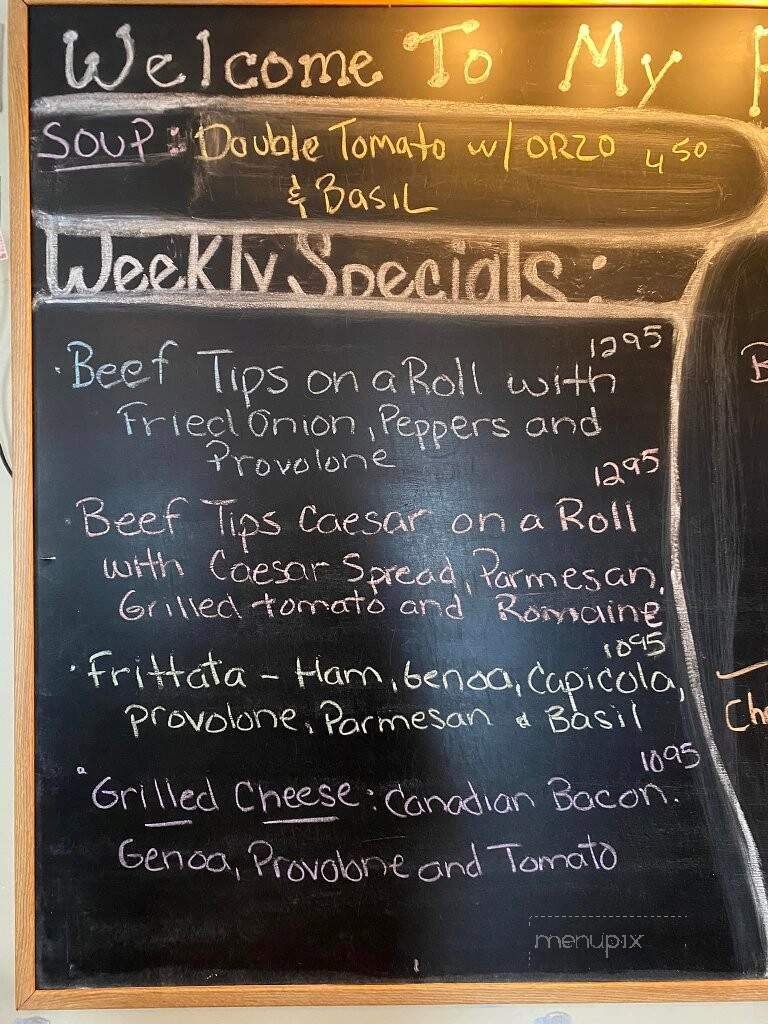 Welcome To My
SOUP: Double Tomato w/ ORZO 4 50
& Basil
Weekly Specials:
12 95
· Beef Tips on a Roll with
Fried Onion, Peppers and
Provolone
12 95
Beef Tips Caesar on a Roll
with Caesar Spread, Parmesan,
Grilled tomato and Romaine
10 95
· Frittata - Ham, Genoa, Capicola,
Provolone, Parmesan & Basil
10 95
Grilled Cheese: Canadian Bacon.
Genoa, Provolone and Tomato
menupix